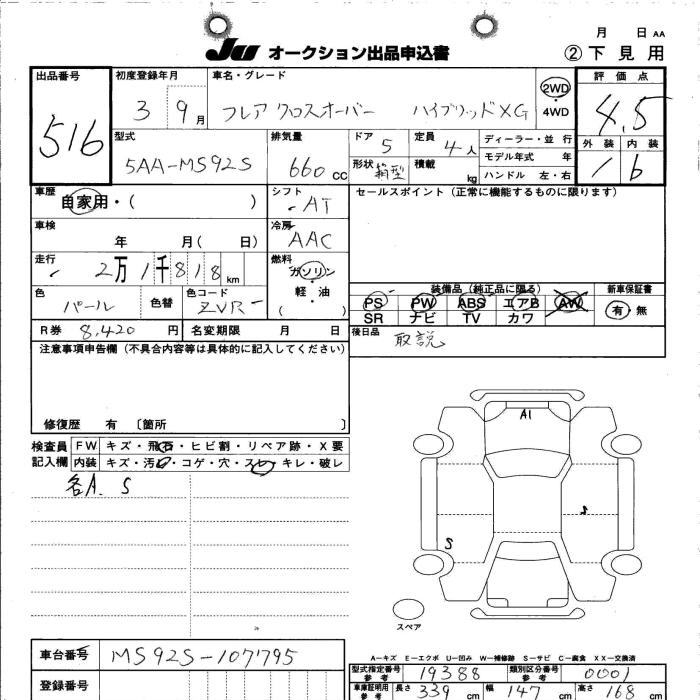 月 日 AA
JU オークション出品申込書 ②下見用
出品番号 516
初度登録年月 3 9月
車名・グレード フレア クロスオーバー ハイブリッドXG
2WD
4WD
評価点 4.5
外装 内装
1 b
型式 5AA-MS92S
排気量 660cc
ドア 5
定員 4人
形状 箱型
積載 kg
ディーラー・並行
モデル年式 年
ハンドル 左・右
車歴 自家用・( )
シフト AT
セールスポイント(正常に機能するものに限ります)
車検 年 月( 日)
冷房 AAC
走行 2万1千818km
燃料 ガソリン
・
軽・油
( )
色 パール 色替 色コード ZVR
装備品(純正品に限る) 新車保証書
PS PW ABS エアB AW 有・無
SR ナビ TV カワ
R券 8,420円 名変期限 月 日
後日品 取説
注意事項申告欄(不具合内容等は具体的に記入してください)
修復歴 有 〔箇所 〕
検査員 FW キズ・飛石・ヒビ割・リペア跡・X要
記入欄 内装 キズ・汚・コゲ・穴・スレ・キレ・破レ
各A. S
A1
S
スペア
A-キズ E-エクボ U-凹み W-補修跡 S-サビ C-腐食 XX-交換済
車台番号 MS92S-107795
型式指定番号 参考 19388 類別区分番号 参考 0001
登録番号
車庫証明用 参考 長さ 339 cm 幅 147 cm 高さ 168 cm